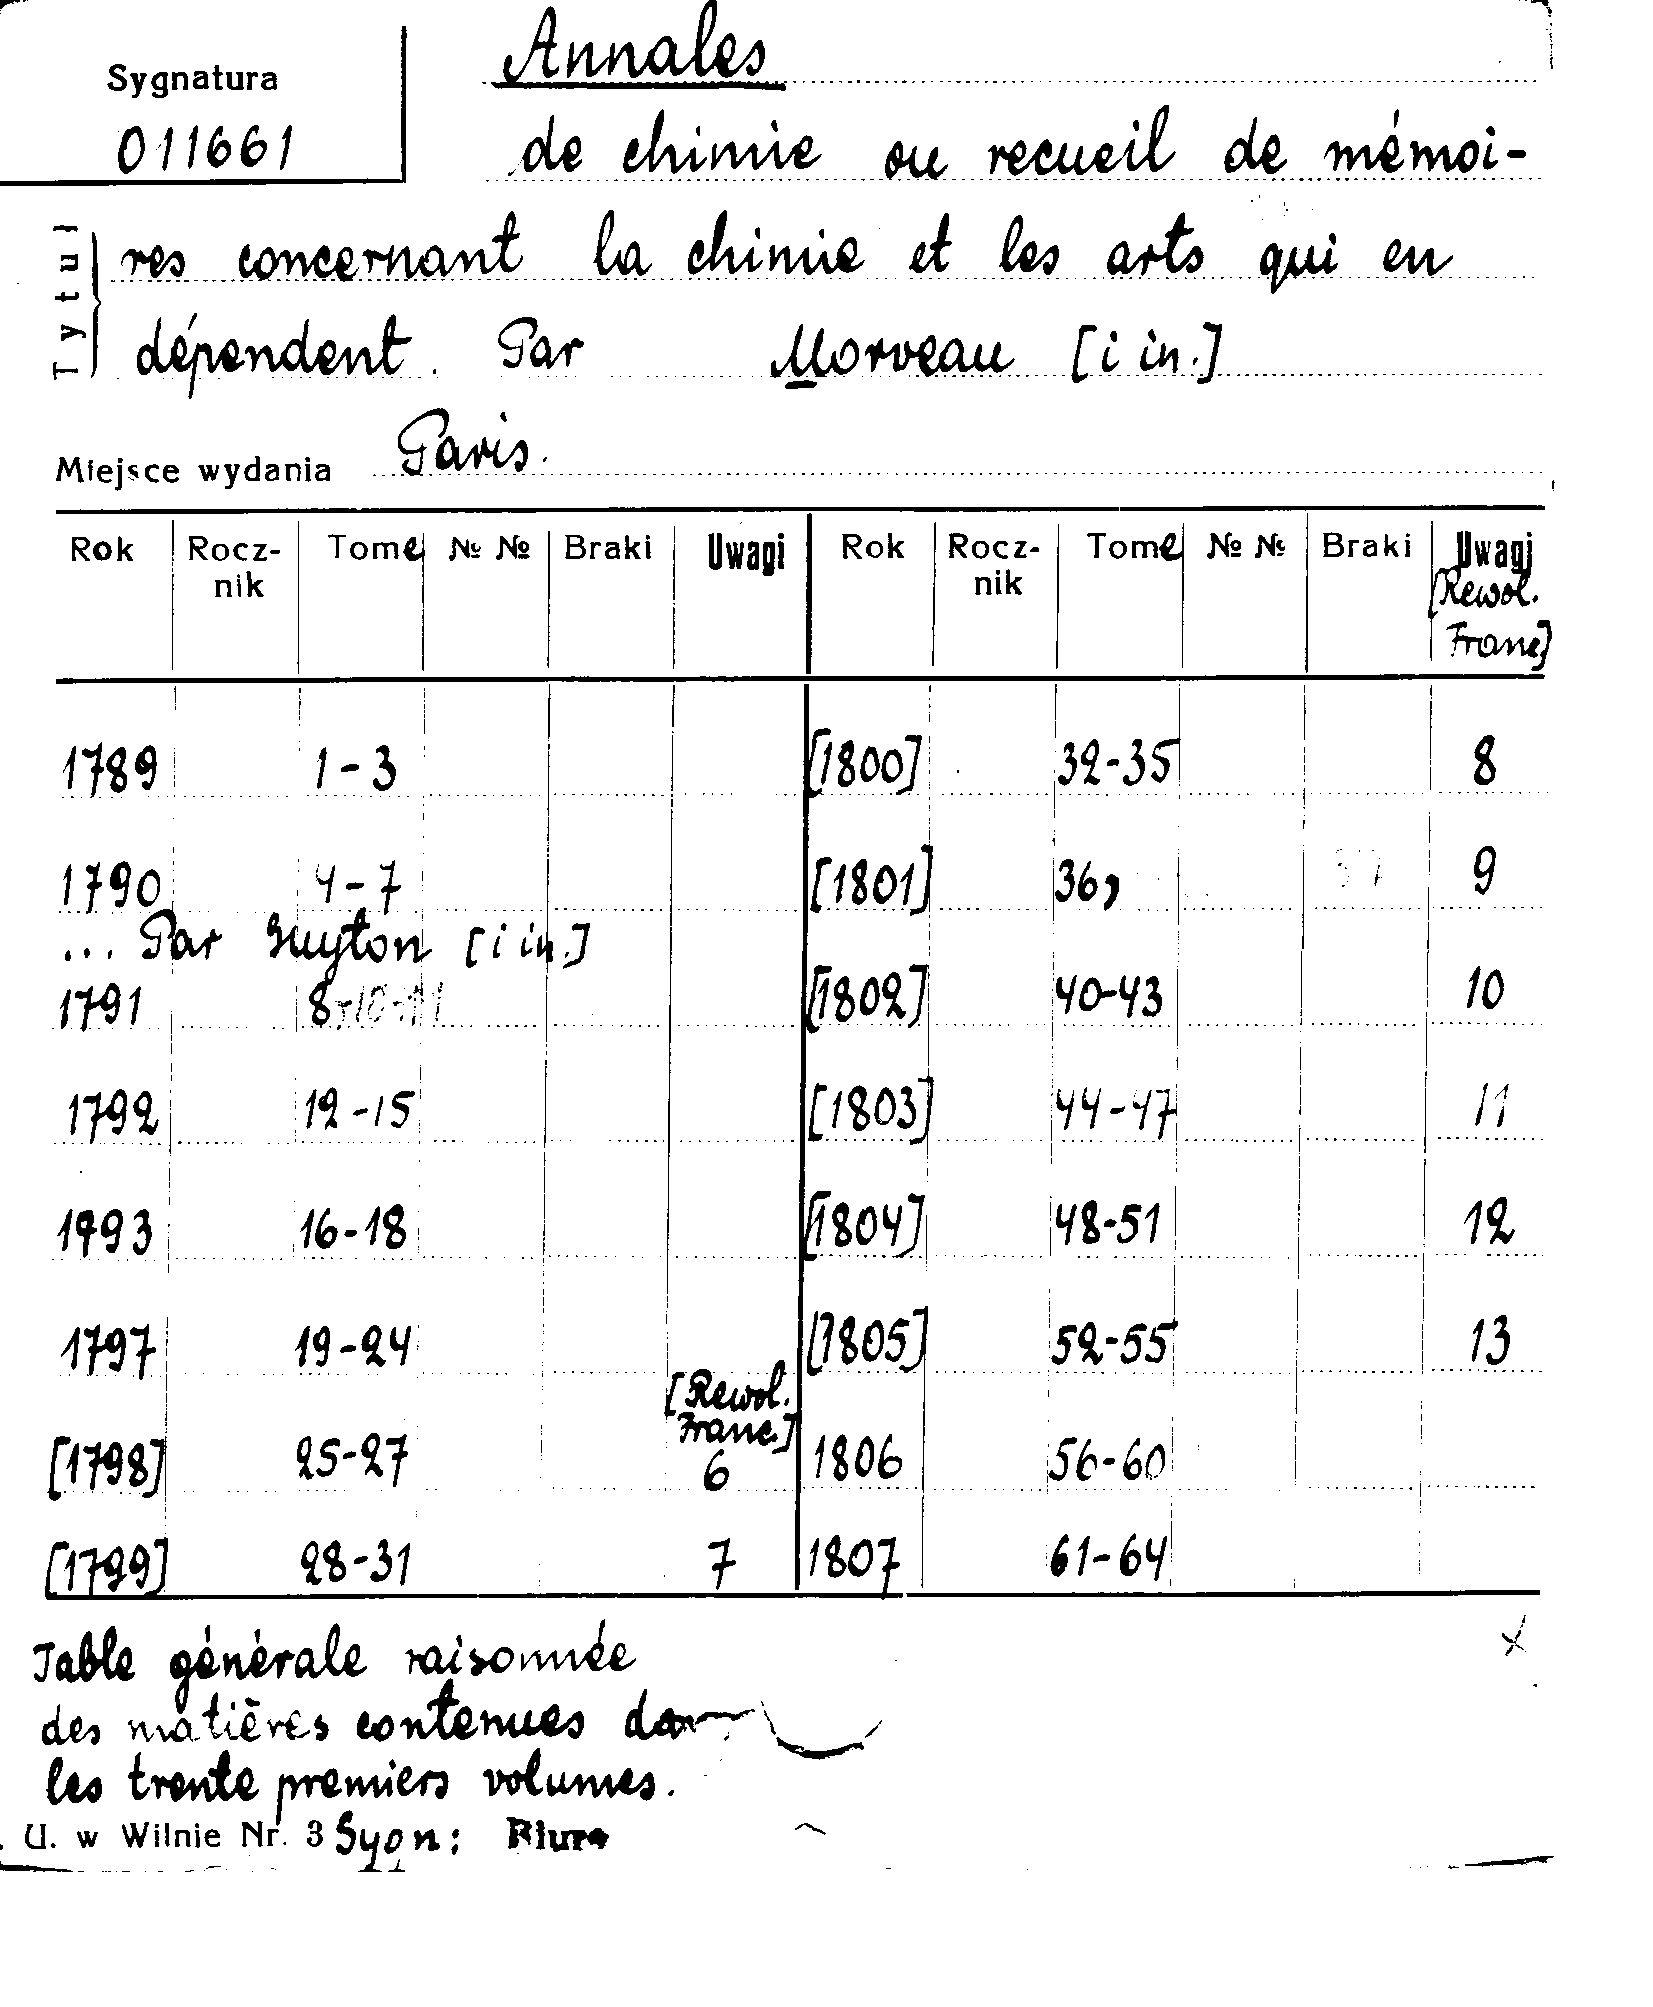 Annales
Sygnatura
011661
de chimie ou recueil de mémoi-
res concernant la chimie et les arts qui en
Tytuł
dépendent. Par Morveau [i in.]
Miejsce wydania Paris.
Rok Rocz- Tome № № Braki Uwagi Rok Rocz- Tome № № Braki Uwagi
nik nik [Rewol.
Franc]
1789 1-3 [1800] 32-35 8
1790 4-7 [1801] 36, 37 9
... Par Guyton [i in.]
1791 8, 10-11 [1802] 40-43 10
1792 12-15 [1803] 44-47 11
1793 16-18 [1804] 48-51 12
1797 19-24 [1805] 52-55 13
[Rewol.
Franc.]
[1798] 25-27 6 1806 56-60
[1799] 28-31 7 1807 61-64
Table générale raisonnée
des matières contenues
les trente premiers volumes.
U. w Wilnie Nr. 3 Sygn: Biuro